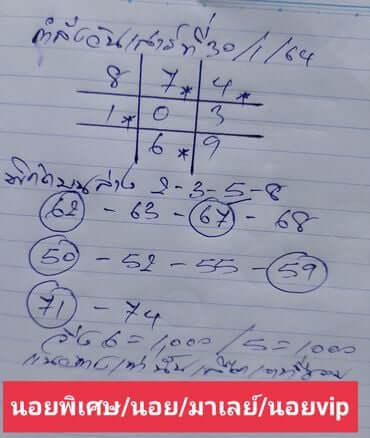 วันเสาร์ที่ 30/1/64
8 7* 4*
1* 0 3
6* 9
บนล่าง 2-3-5-8
62 - 63 - 67 - 68
50 - 52 - 55 - 59
71 - 74
วิ่ง 6 = 1,000 / 5 = 1000
นอยพิเศษ/นอย/มาเลย์/นอยvip